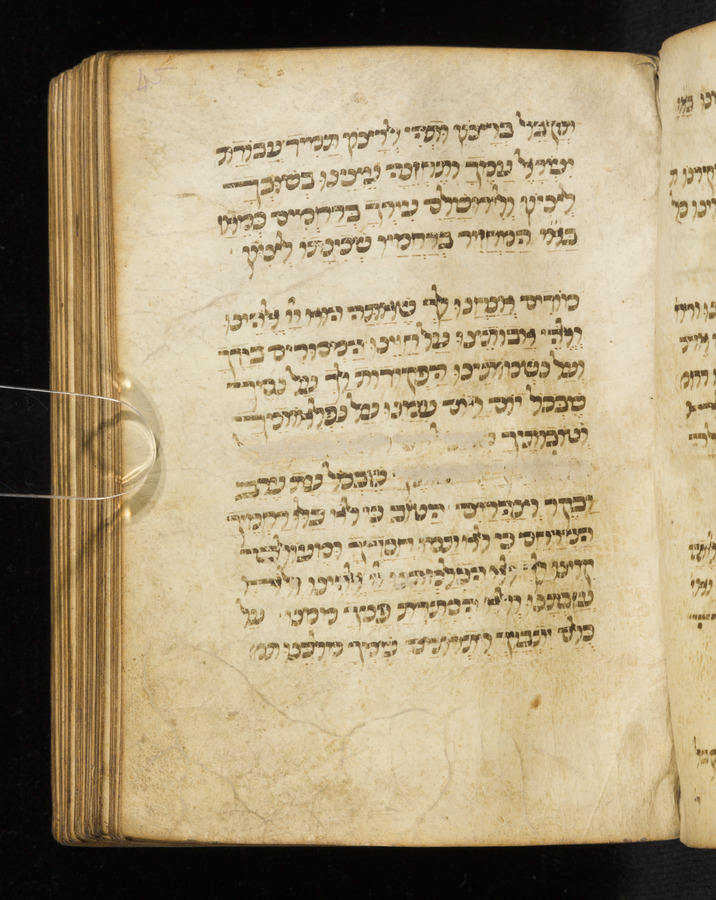 ותקבל ברצון ותהי לרצון תמיד עבודת
ישראל עמך ותחזינה עינינו בשובך
לציון ולירושלם עירך ברחמים כמאז
המחזיר ברחמיו שכינתו לציון
מודים אנחנו לך שאתה הוא יי אלהינו
ואלהי אבותינו על חיינו המסורים בידך
ועל נשמותינו הפקודות לך על נסיך
שבכל יום ויום עמנו ועל נפלאותיך
וטובותיך
שבכל עת ערב
ובקר וצהרים הטוב כי לא כלו רחמיך
המרחם כי לא תמו חסדיך
קוינו לך ולא הכלמתנו יי אלהינו ולא
עזבתנו ולא הסתרת פניך ממנו על
כולם יתברך ויתרומם שמך מלכנו תמ׳